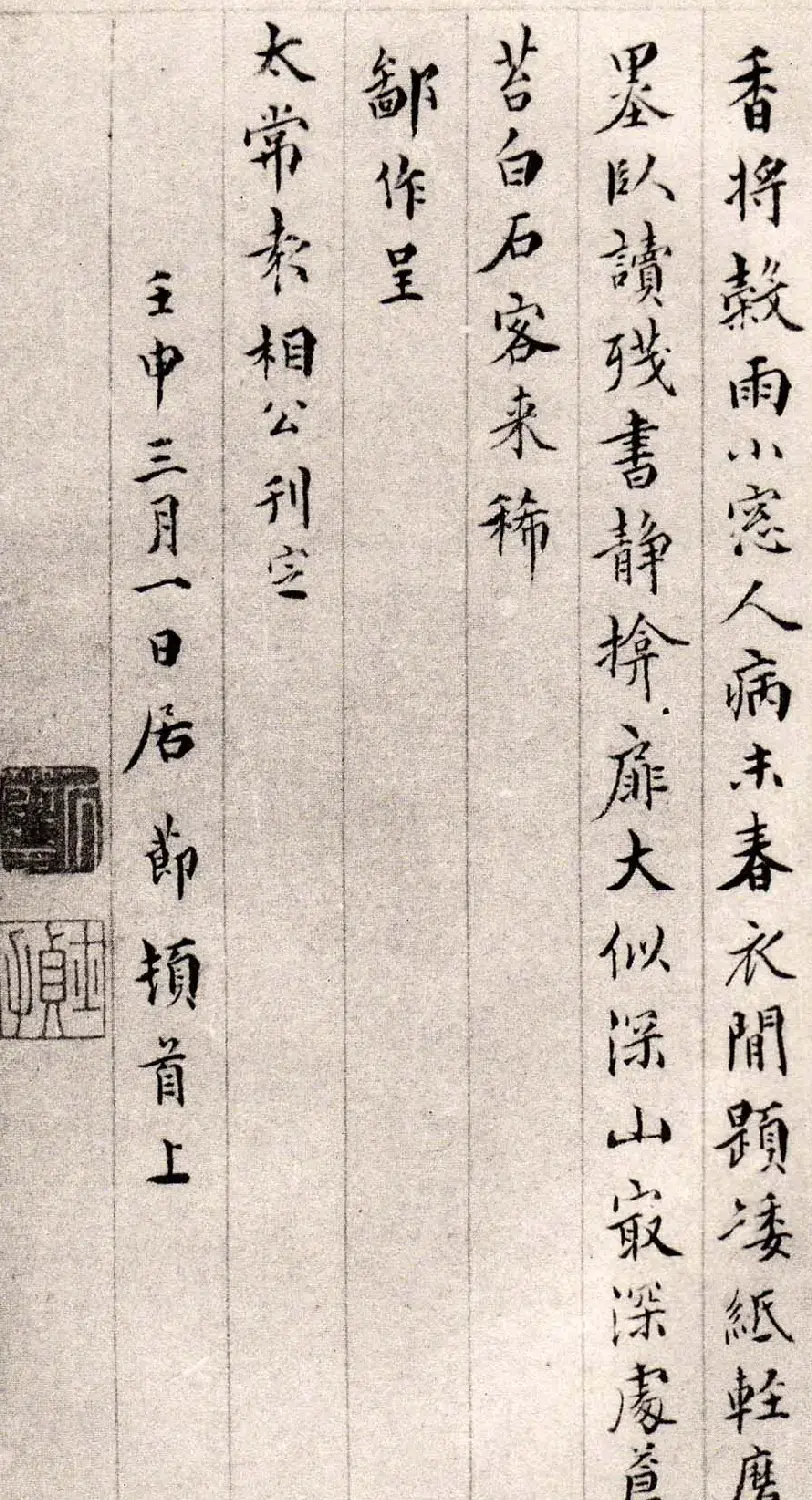 香將穀雨小窓人病未春衣閒題矮紙軽磨
墨臥讀残書静揜扉大似深山㝡深處蒼
苔白石客来稀
鄙作呈
太常袁相公刊定
壬申三月一日居節頓首上